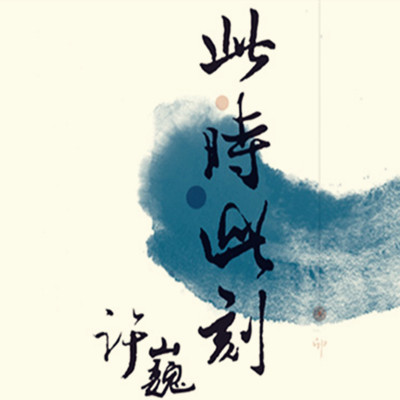 此時此刻
许巍